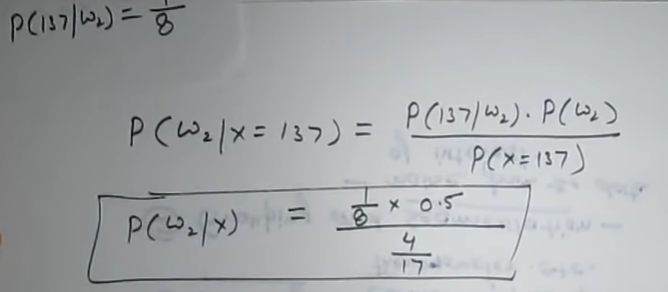 P(137/ω₂) = 1/8
P(ω₂/x = 137) = P(137/ω₂) · P(ω₂) / P(x = 137)
P(ω₂/x) = 1/8 × 0.5 / 4/17